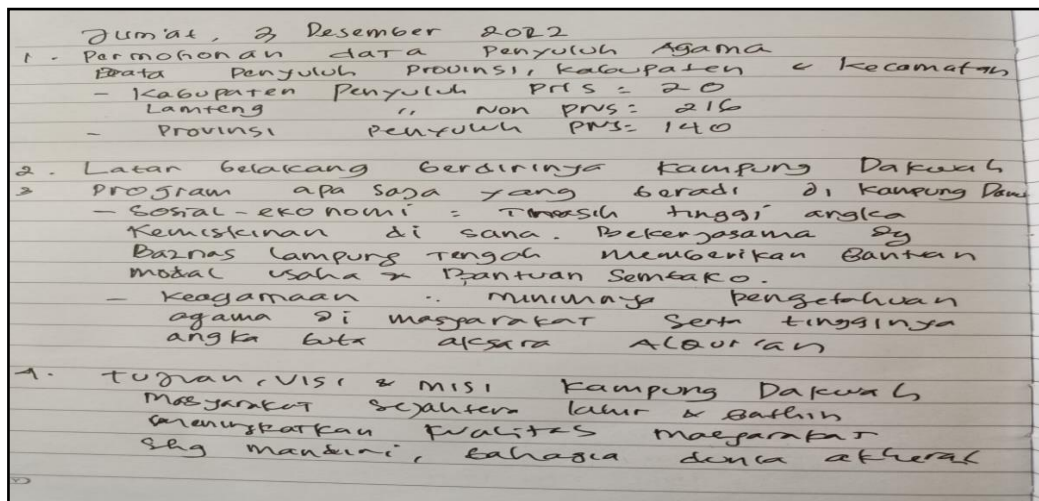 Jum'at, 2 Desember 2022
1. Permohonan data Penyuluh Agama
Data Penyuluh Provinsi, Kabupaten & Kecamatan
- Kabupaten Penyuluh PNS = 20
Lamteng " Non PNS = 216
- Provinsi Penyuluh PNS = 140
2. Latar belakang berdirinya Kampung Dakwah
3 Program apa saja yang berada di Kampung
- Sosial-ekonomi = masih tinggi angka
Kemiskinan di sana. Bekerjasama dg
Baznas Lampung Tengah memberikan Bantuan
modal usaha & Bantuan Sembako.
- Keagamaan : minimnya pengetahuan
agama di masyarakat serta tingginya
angka buta aksara Alqur'an
4. Tujuan, Visi & Misi Kampung Dakwah
Masyarakat sejahtera lahir & Bathin
meningkatkan kualitas masyarakat
shg mandiri, bahagia dunia akherat